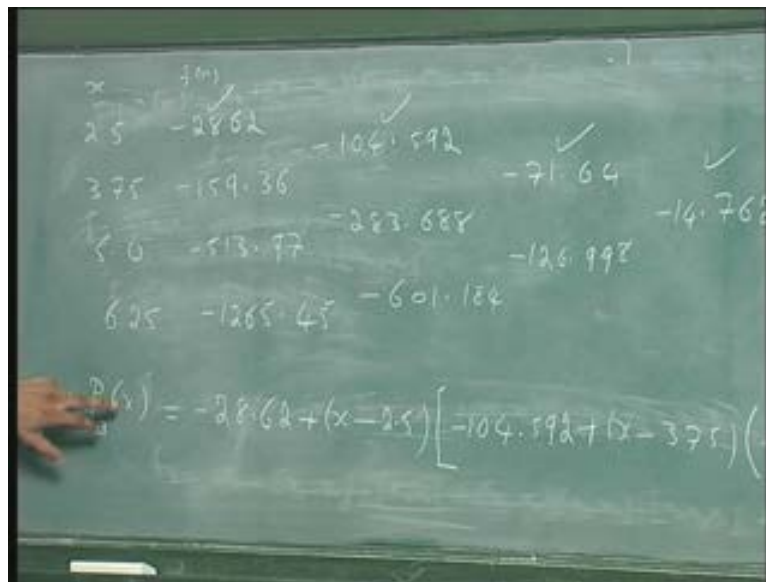 x f(x)
2.5 -28.62
-104.592
3.75 -159.36 -71.64
-283.688 -14.762
5.0 -513.97 -126.998
6.25 -1265.45 -601.184
P₃(x) = -28.62+(x-2.5)[-104.592+(x-3.75)(-